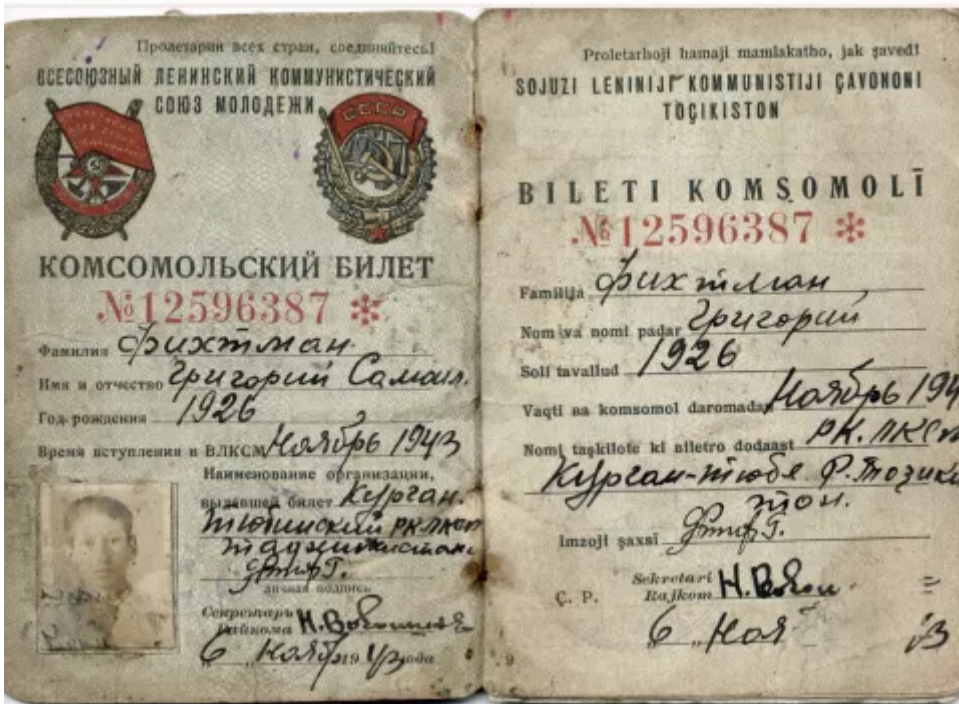 Пролетарии всех стран, соединяйтесь!
ВСЕСОЮЗНЫЙ ЛЕНИНСКИЙ КОММУНИСТИЧЕСКИЙ
СОЮЗ МОЛОДЕЖИ
СССР
КОМСОМОЛЬСКИЙ БИЛЕТ
№12596387 *
Фамилия Фихтман
Имя и отчество Григорий Самоил.
Год рождения 1926
Время вступления в ВЛКСМ Ноябрь 1943
Наименование организации,
выдавшей билет Курган.
Тюбинский РК ЛКСМ
Таджикистана
личная подпись
Секретарь
Райкома Н.
6 Ноября 1943 года
Proletarhoji hamaji mamlakatho, jak şaved!
SOJUZI LENINIJI KOMMUNISTIJI ÇAVONONI
TOÇIKISTON
BILETI KOMSOMOLĪ
№12596387 *
Familija Фихтман
Nom va nomi padar Григорий
Soli tavallud 1926
Vaqti ba komsomol daromadan Ноябрь 194
Nomi taşkilote ki biletro dodaast РК. ЛКСМ
Курган-тюбе Р. Тозики
тон.
Imzoji şaxsī
Ç. P.
Sekretari
Rajkom Н.
6 „ Ноя